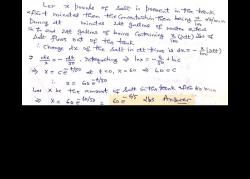 Let x pounds of salt is present in the tank
after t minutes then the concentration then being x/50 lb/min
During dt minutes 2dt gallons of water enters
& 2dt gallons of brine containing x/50 (2dt) lbs of
salt flows out of the tank
∴ Change dx of the salt in dt time is dx = -x/50 (2dt)
⇒ dx/x = -dt/50 . Integrating ⇒ ln x = -t/50 + ln c
⇒ x = c e^(-t/50) at t=0, x=60 ⇒ 60=c
∴ x = 60 e^(-t/50)
Let x be the amount of salt in the tank after 40 min
⇒ x = 60 e^(-40/50) = 60 e^(-4/5) lbs Answer